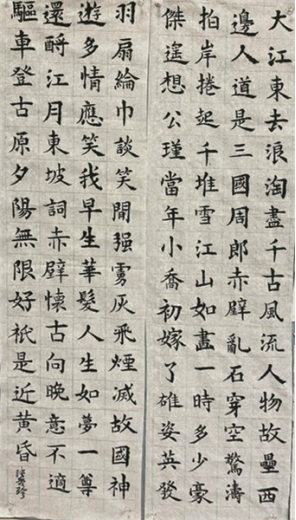 大江東去浪淘盡千古風流人物故壘西
邊人道是三國周郎赤壁亂石穿空驚濤
拍岸捲起千堆雪江山如畫一時多少豪
傑遙想公瑾當年小喬初嫁了雄姿英發
羽扇綸巾談笑間强虜灰飛煙滅故國神
遊多情應笑我早生華髮人生如夢一尊
還酹江月東坡詞赤壁懷古向晚意不適
驅車登古原夕陽無限好祇是近黄昏